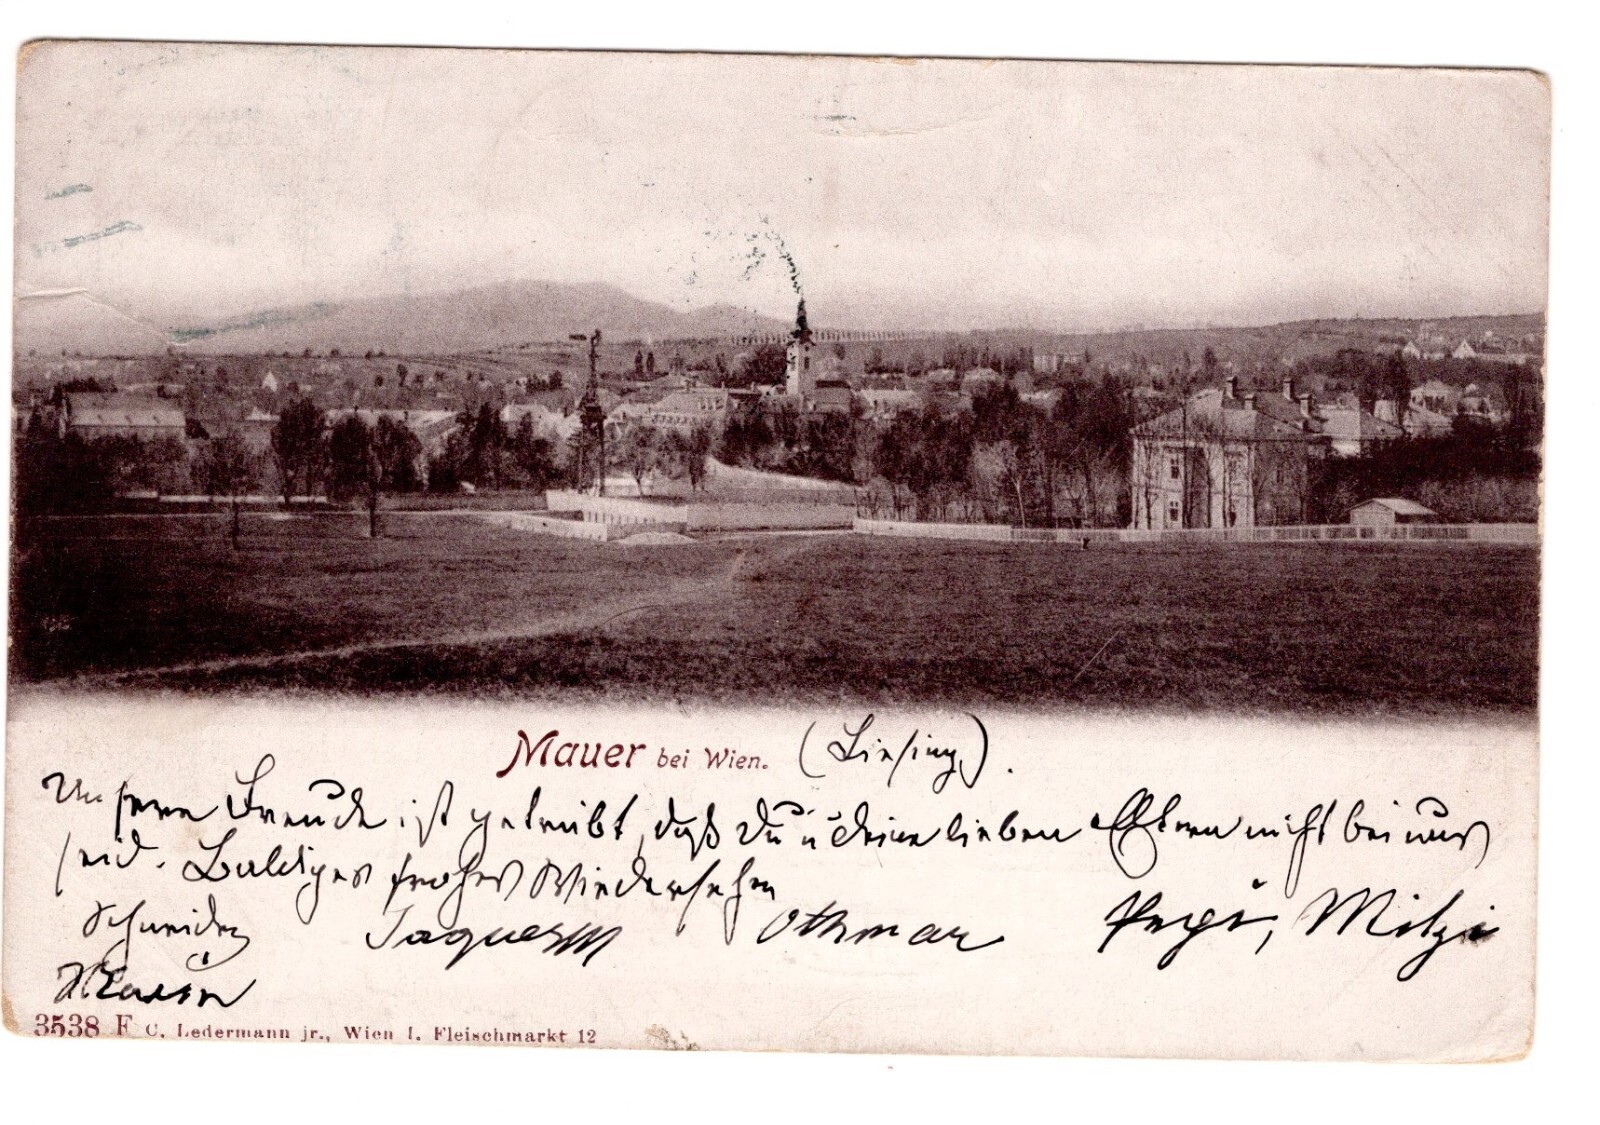 Mauer bei Wien. (Liesing).
Unsere Freude ist getrübt, daß Du u deine lieben Eltern nicht bei uns
seid. Baldiges frohes Wiedersehn
Schneider Jaques Othmar Pepi, Mitzi
3538 F C. Ledermann jr., Wien I. Fleischmarkt 12